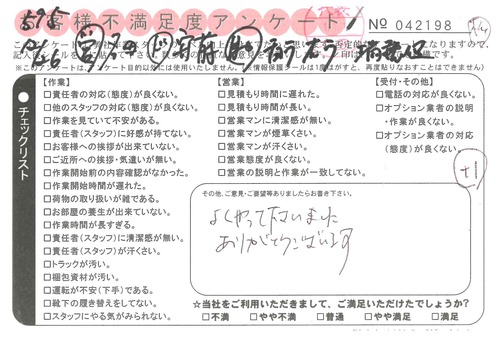 お客様不満足度アンケート
№ 042198
【作業】
□責任者の対応(態度)が良くない。
□他のスタッフの対応(態度)が良くない。
□作業を見ていて不安がある。
□責任者(スタッフ)に好感が持てない。
□お客様への挨拶が出来ていない。
□ご近所への挨拶・気遣いが無い。
□作業開始前の内容確認がなかった。
□作業開始時間が遅れた。
□荷物の取り扱いが雑である。
□お部屋の養生が出来ていない。
□作業時間が長すぎる。
□責任者(スタッフ)に清潔感が無い。
□責任者(スタッフ)が汗くさい。
□トラックが汚い。
□梱包資材が汚い。
□運転が不安(下手)である。
□靴下の履き替えをしてない。
□スタッフにやる気がみられない。
【営業】
□見積もり時間に遅れた。
□見積もり時間が長い。
□営業マンに清潔感が無い。
□営業マンが煙草くさい。
□営業マンが汗くさい。
□営業態度が良くない。
□営業の説明と作業が一致してない。
【受付・その他】
□電話の対応が良くない。
□オプション業者の説明
・作業が良くない。
□オプション業者の対応
(態度)が良くない。
●チェックリスト
+1
その他、ご意見・ご要望等ありましたらお書き下さい。
よくやって下さいました
ありがとうございます
☆当社をご利用いただきまして、ご満足いただけたでしょうか？
□不満 □やや不満 □普通 □やや満足 □満足